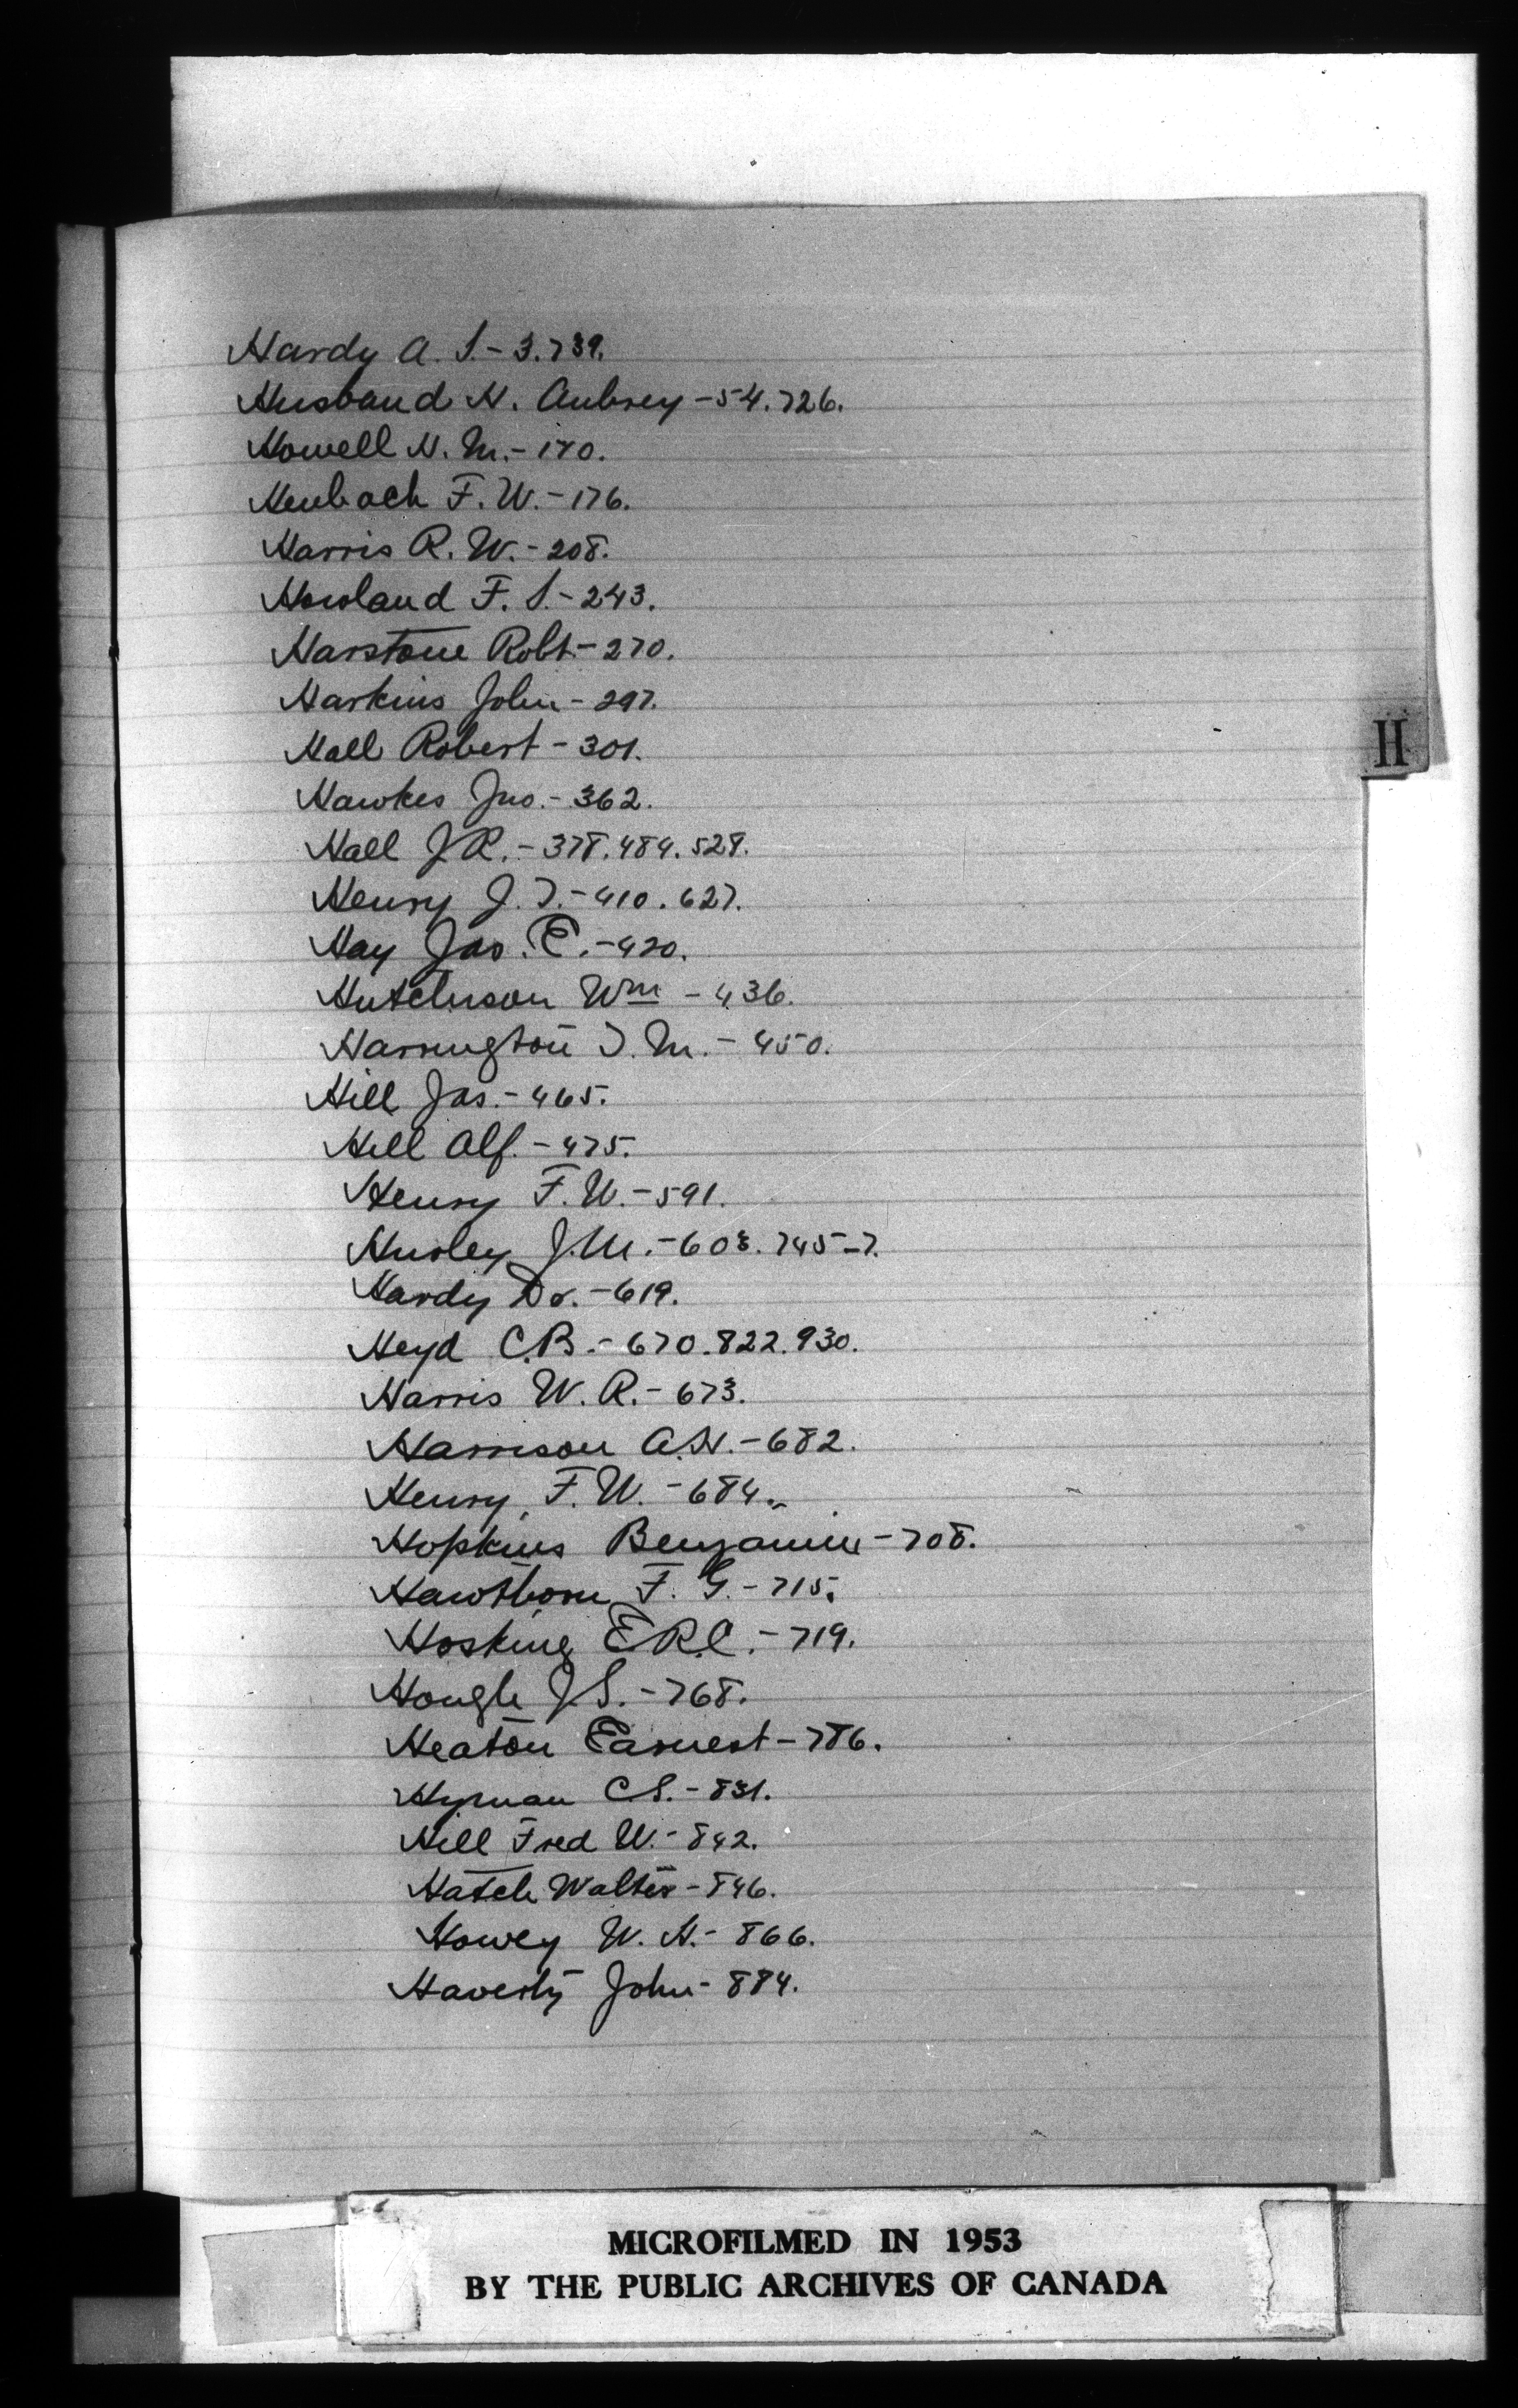 Hardy A. S. - 3. 739.
Husband H. Aubrey - 54. 726.
Howell H. M. - 170.
Heubach F. W. - 176.
Harris R. W. - 208.
Howland F. S. - 243.
Harstone Robt - 270.
Harkins John - 297.
Hall Robert - 301.
Hawkes Jno. - 362.
Hall J R. - 378. 484. 528.
Henry J. T. - 410. 627.
Hay Jas. E. - 420.
Hutchison Wm - 436.
Harrington T. M. - 450.
Hill Jas. - 465.
Hill Alf. - 475.
Henry F. W. - 591.
Hurley J. M. - 603. 745-7.
Hardy Dr. - 619.
Heyd C. B. - 670. 822. 930.
Harris W. R. - 673.
Harrison A. H. - 682.
Henry F. W. - 684.
Hopkins Benjamin - 708.
Hawthorn F. G. - 715.
Hosking E. R. C. - 719.
Hough J S. - 768.
Heaton Earnest - 786.
Hyman C S. - 831.
Hill Fred W. - 842.
Hatch Walter - 846.
Howey W. H. - 866.
Haverty John - 884.
H
MICROFILMED IN 1953
BY THE PUBLIC ARCHIVES OF CANADA